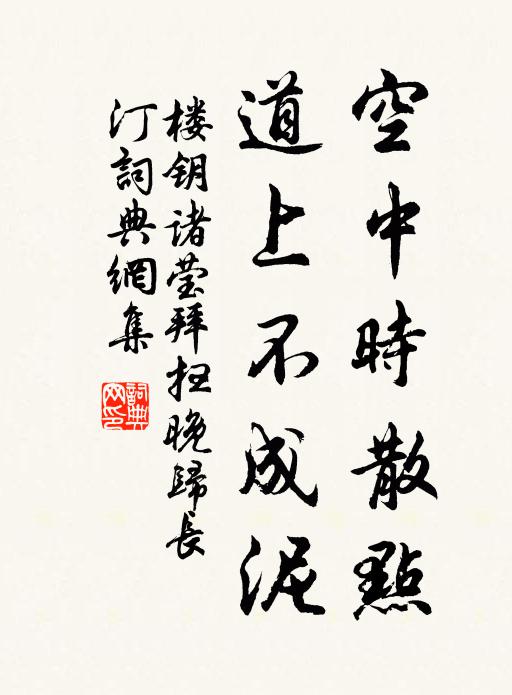 空中時散點
道上不成泥
楼钥诸莹拜扫晚歸長
汀詞典網集
詞典網印